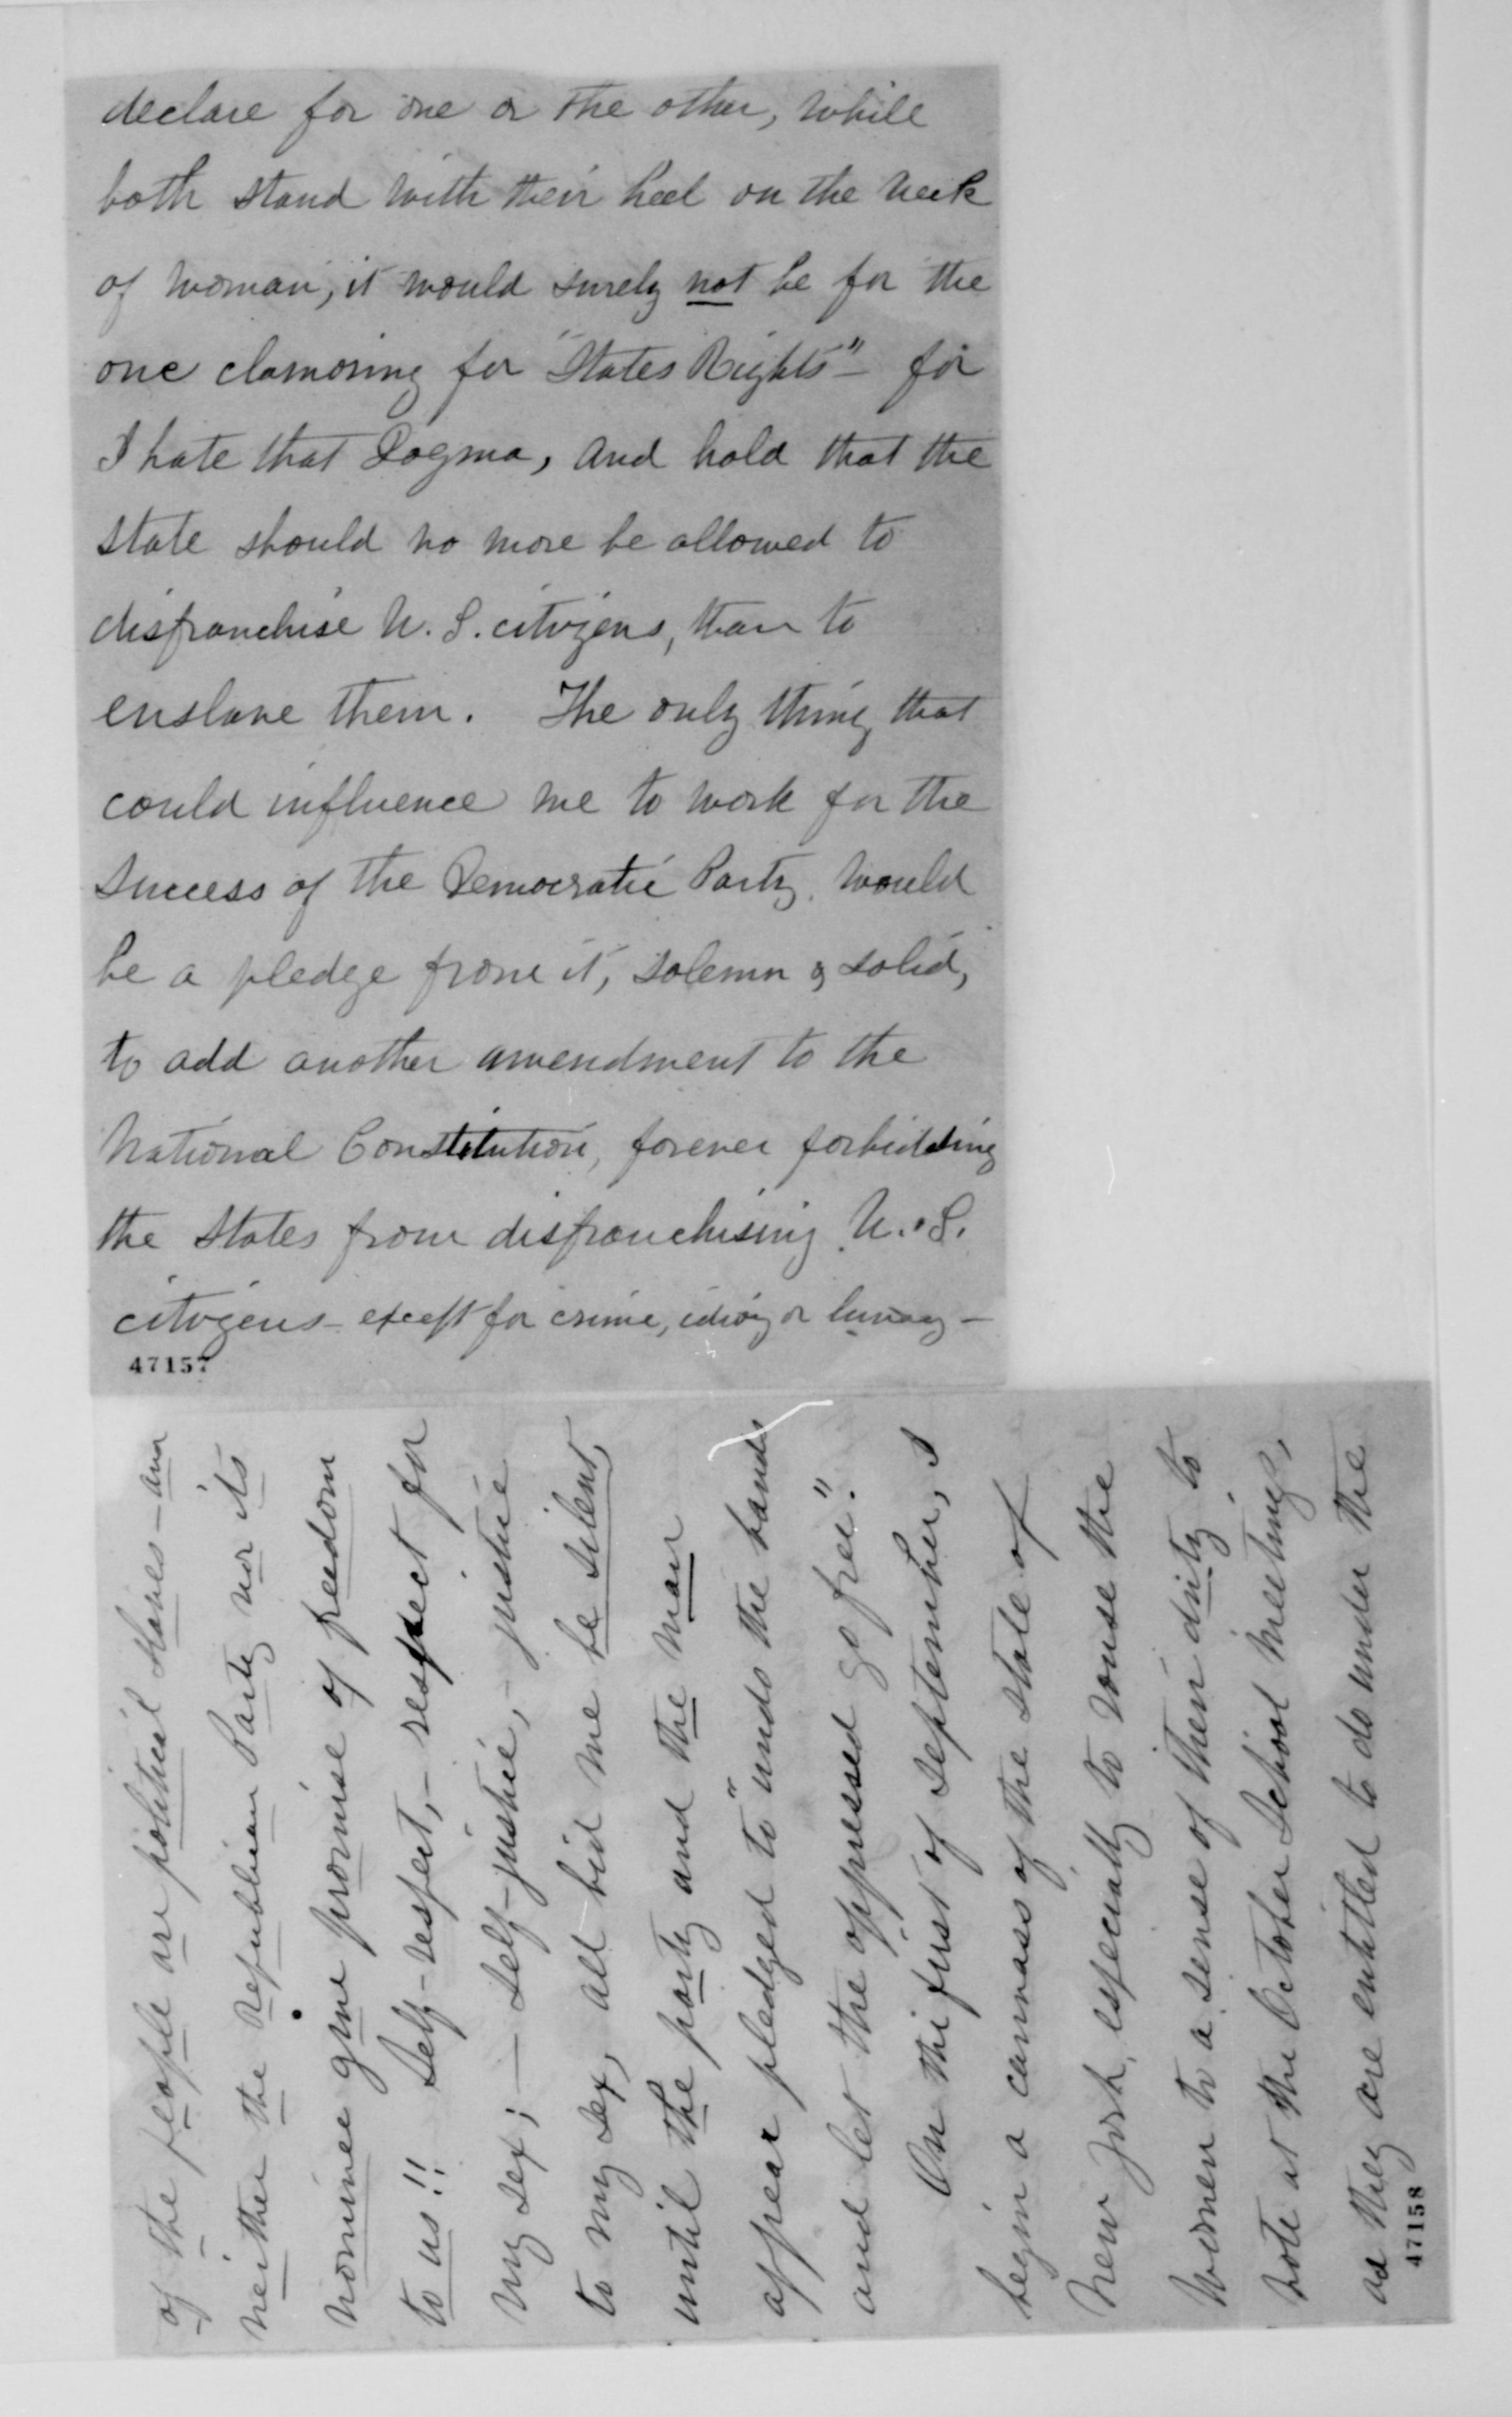 declare for one or the other, while
both stand with their heel on the neck
of woman, it would surely not be for the
one clamoring for "States Rights" – for
I hate that Dogma, and hold that the
state should no more be allowed to
disfranchise U. S. citizens, than to
enslave them. The only thing that
could influence me to work for the
success of the Democratic Party, would
be a pledge from it, solemn & solid,
to add another amendment to the
National Constitution, forever forbidding
the States from disfranchising U. S.
citizens – except for crime, idiocy or lunacy –
47157
of the people are political slaves – and
neither the Republican Party nor its
nominee give promise of freedom
to us!! Self-respect, – respect for
my sex; – self-justice, – justice
to my sex, all bid me be silent,
until the party and the man
appear pledged to "undo the bands
and let the oppressed go free".
On the first of September, I
begin a canvass of the state of
New York, especially to rouse the
women to a sense of their duty to
vote at the October School meetings,
as they are entitled to do under the
47158